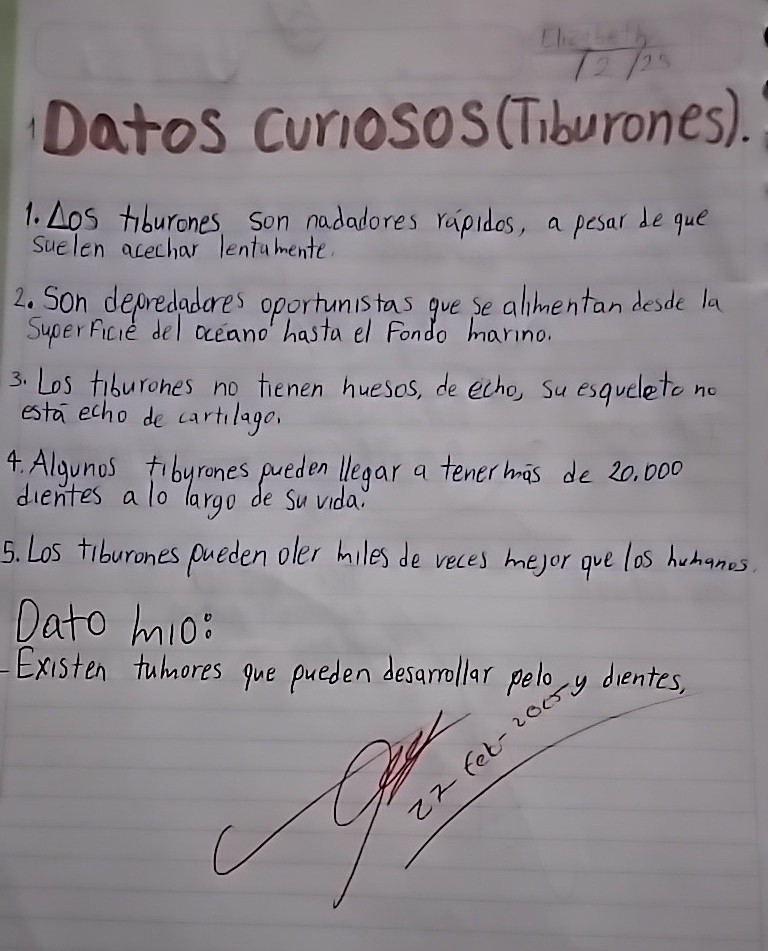 Elizabeth
/2/25
Datos curiosos (Tiburones).
1. Los tiburones son nadadores rápidos, a pesar de que
suelen acechar lentamente.
2. Son depredadores oportunistas que se alimentan desde la
superficie del océano hasta el fondo marino.
3. Los tiburones no tienen huesos, de echo, su esqueleto no
está echo de cartilago.
4. Algunos tiburones pueden llegar a tener más de 20.000
dientes a lo largo de su vida.
5. Los tiburones pueden oler miles de veces mejor que los humanos.
Dato mio:
- Existen tumores que pueden desarrollar pelo y dientes,
22 feb- 2025